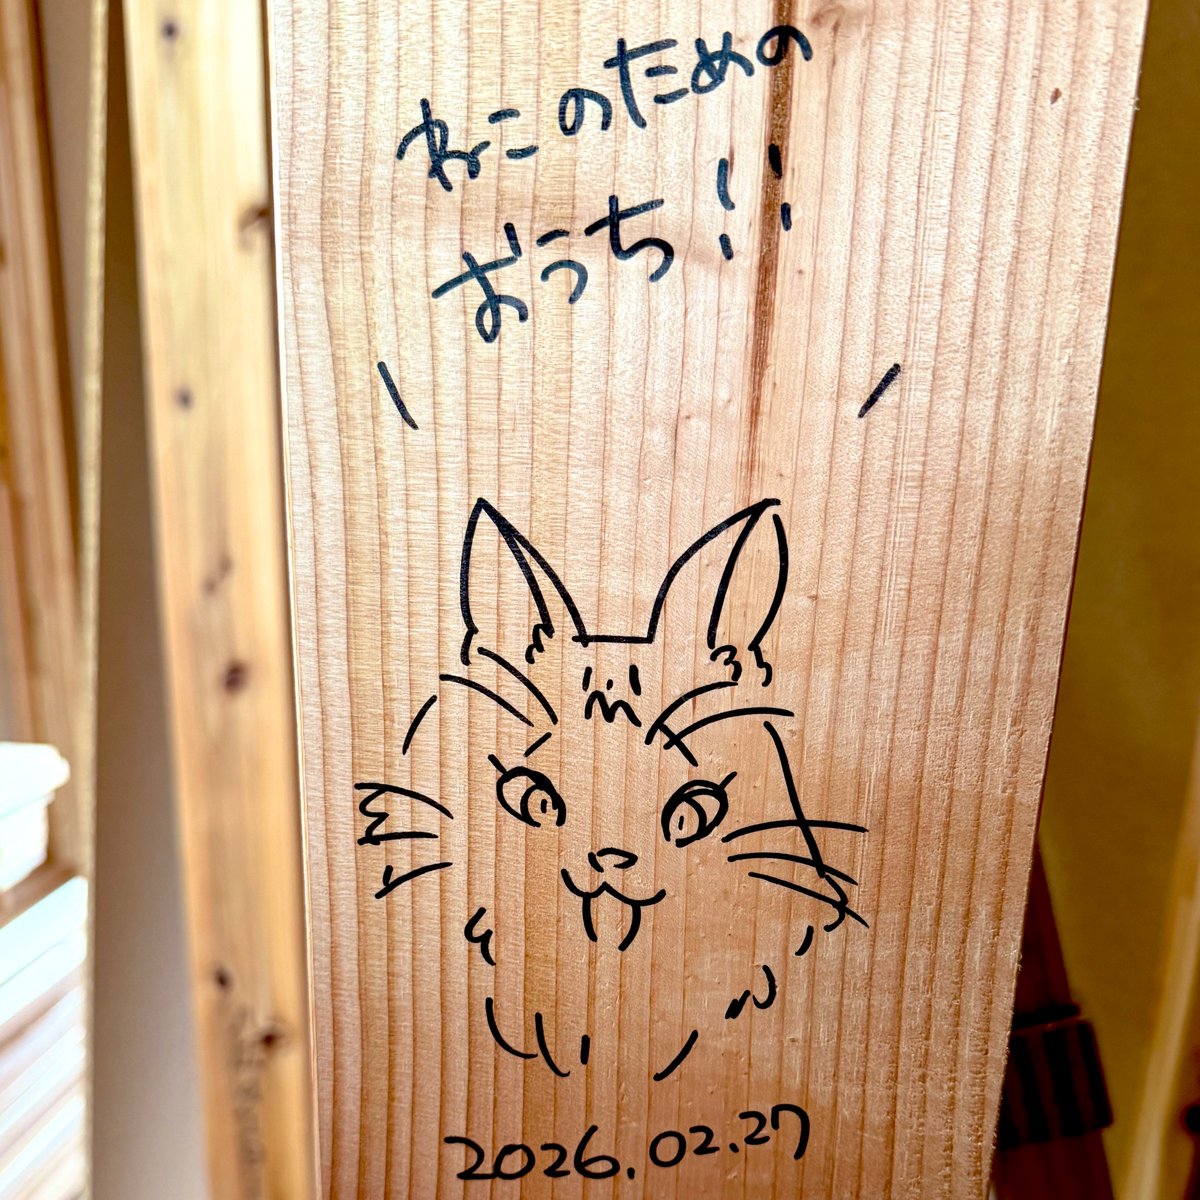 ねこのための
おうち!!
2026.02.27